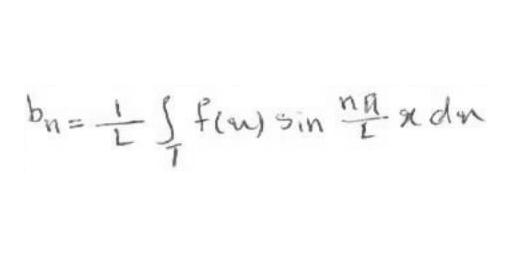 bₙ = 1/L ∫_T f(x) sin nπ/L x dx